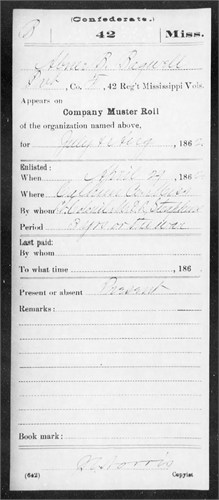 B
(Confederate.)
42 Miss.
Abner B. Bagwell
Pvt, Co. F, 42 Reg't Mississippi Vols.
Appears on
Company Muster Roll
of the organization named above,
for July & Aug, 186
Enlisted:
When April 29, 186
Where Calhoun
By whom
Period 3 yrs or the war
Last paid:
By whom
To what time, 186
Present or absent Present
Remarks:
Book mark:
(642) Copyist